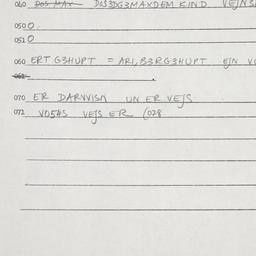 040 DOS MAX DOS3DG3MAXDEM KIND VEJNS
050 O.
051 O
060 ERT G3HUPT = ARI, B3RG3HUPT EJN V
061
070 ER DARWISN UN ER VEJS
072 VOS45 VEJS ER (078